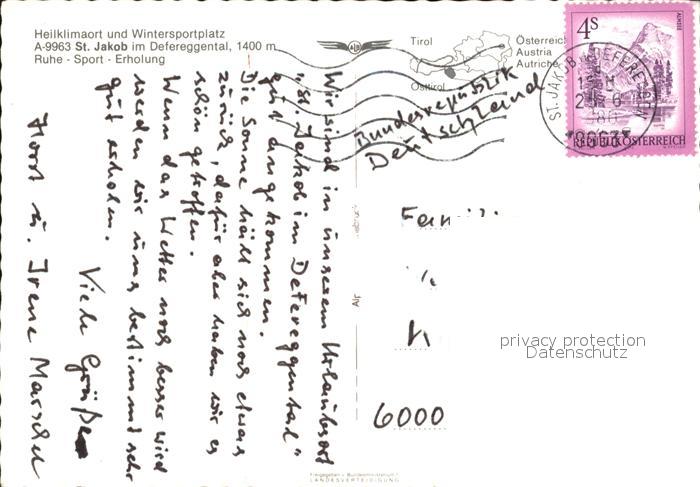 Heilklimaort und Wintersportplatz
A-9963 St. Jakob im Defereggental, 1400 m
Ruhe - Sport - Erholung
Tirol
Osttirol
Österreich
Austria
Autriche
4s
REPUBLIK ÖSTERREICH
ST. JAKOB
9963
Bundesrepublik
Deutschland
Wir sind in unserem Urlaubsort
"St. Jakob im Defereggental"
gut angekommen.
Die Sonne hält sich noch etwas
zurück, dafür aber haben wir es
schön getroffen.
Wenn das Wetter noch besser wird
werden wir uns bestimmt sehr
gut erholen.
Viele Grüße
Horst u. Irene
6000
privacy protection
Datenschutz
LANDESVERTEIDIGUNG